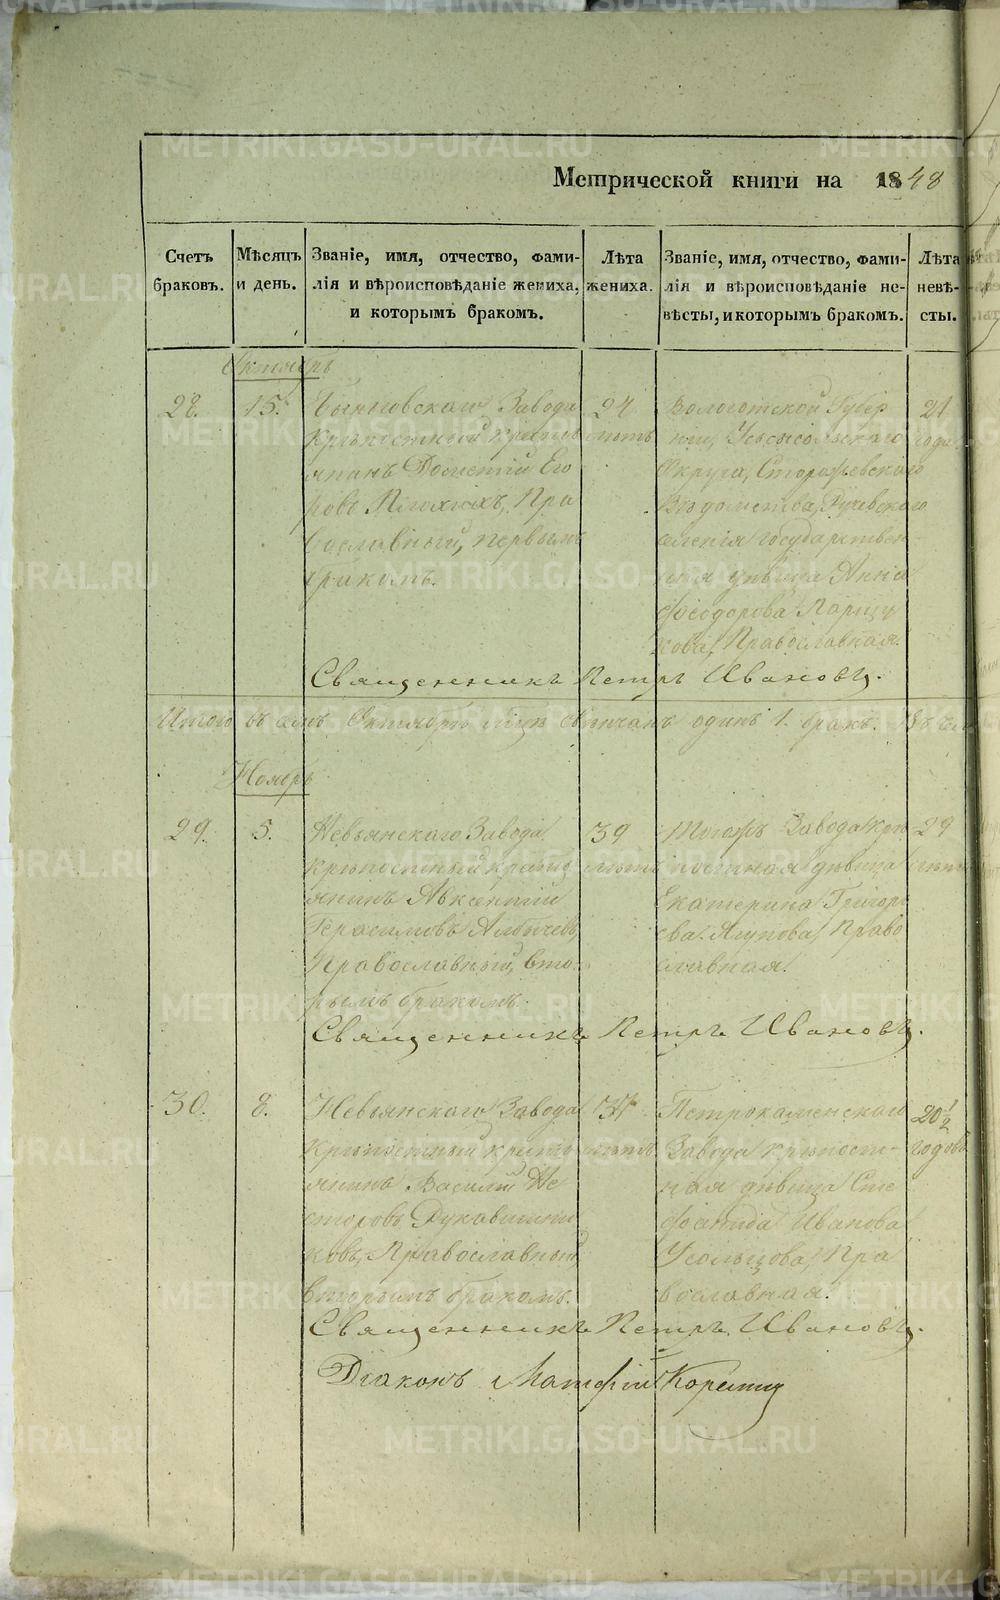 Метрической книги на 1848
Счетъ браковъ.
Мѣсяцъ и день.
Званіе, имя, отчество, фами-
лія и вѣроисповѣданіе жениха,
и которымъ бракомъ.
Лѣта жениха.
Званіе, имя, отчество, фами-
лія и вѣроисповѣданіе не-
вѣсты, и которымъ бракомъ.
Лѣта невѣ-
сты.
Октябрь
28. 15.
Быньговскаго Завода
крѣпостный кресть
янинъ Дометій Его
ровъ Плохихъ, Пра
вославный, первымъ
бракомъ.
24
лѣтъ
Вологотской Губер
ніи, Усьсысольскаго
Округа, Сторожевскаго
Вѣдомства, Ручевскаго
селенія государствен-
ная дѣвица Анна
Ѳеодорова
Православная.
21
года
Священникъ Петръ Ивановъ.
Итого въ Октябрѣ одинъ 1. бракъ.
Ноябрь
29. 5.
Невьянскаго Завода
крѣпостный кресть
янинъ Авксентій
Герасимовъ
Православный, вто-
рымъ бракомъ.
39
лѣтъ
Тогожъ Завода крѣ
постная дѣвица
Екатерина Григорь
ева Ягунова, Право
славная.
29
лѣтъ
Священникъ Петръ Ивановъ.
30. 8.
Невьянскаго Завода
Крѣпостный кресть
янинъ Василій Не
сторовъ Дукавишни
ковъ, Православный,
вторымъ бракомъ.
37
лѣтъ
Петрокаменскаго
Завода крѣпост-
ная дѣвица Сте
фанида Иванова
Усольцова, Пра
вославная.
20½
годовъ
Священникъ Петръ Ивановъ.
Діаконъ Матфій
METRIKI.GASO-URAL.RU